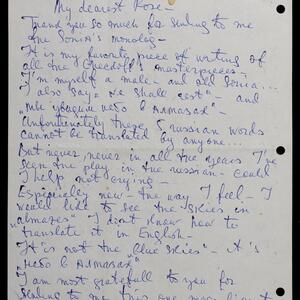 My dearest Rose –
Thank you so much for sending to me
the Sonia's monolog –
It is my favorite piece of writing of
all the masterpieces –
I'm myself a male – and old Sonia...
I also say „We shall rest" – and
„Мы увидим небо в алмазах" –
Unfortunately these 5 russian words
cannot be translated by anyone...
But never never in all the years I've
seen the play in the russian – could
I help not crying –
Especially now – the way I feel – I
would like to see the „skies in
almazes" I don't know how to
translate it in English –
It is not the blue skies – it's
небо в алмазах"
I am most gratefull to you for
sending to me this one